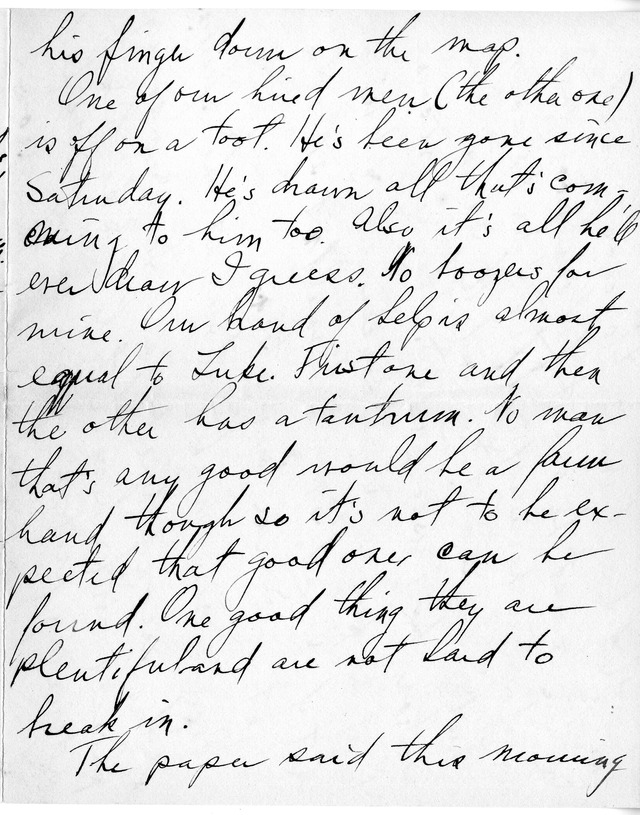 his finger down on the map.
One of our hired men (the other one)
is off on a toot. He's been gone since
Saturday. He's drawn all that's com-
ming to him too. Also it's all he'll
ever draw I guess. No boozers for
mine. Our hand of help is almost
equal to Luke. First one and then
the other has a tantrum. No man
that's any good would be a farm
hand though so it's not to be ex-
pected that good ones can be
found. One good thing they are
plentiful and are not hard to
break in.
The paper said this morning